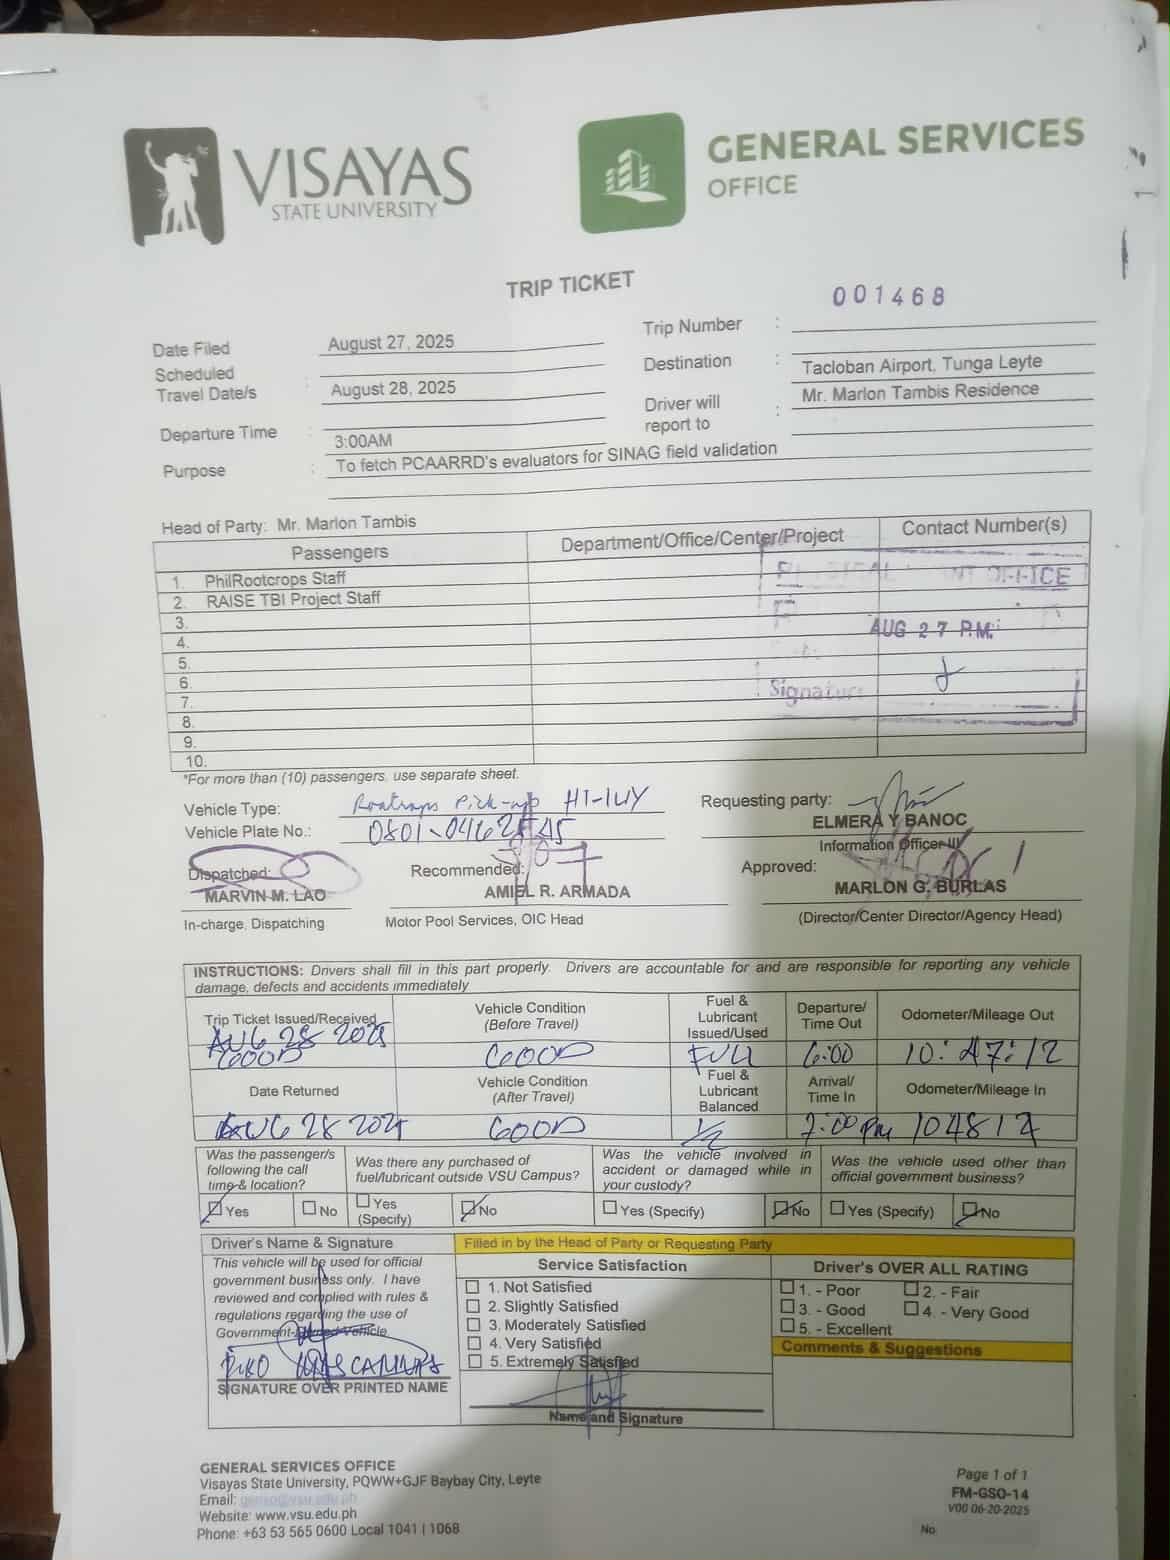 VISAYAS
STATE UNIVERSITY
GENERAL SERVICES
OFFICE
TRIP TICKET
001468
Date Filed August 27, 2025
Trip Number :
Scheduled
Travel Date/s : August 28, 2025
Destination : Tacloban Airport, Tunga Leyte
Departure Time : 3:00AM
Driver will
report to : Mr. Marlon Tambis Residence
Purpose : To fetch PCAARRD's evaluators for SINAG field validation
Head of Party: Mr. Marlon Tambis
Passengers Department/Office/Center/Project Contact Number(s)
1. PhilRootcrops Staff
2. RAISE TBI Project Staff
3.
4.
5.
6.
7.
8.
9.
10.
OFFICE
AUG 27 P.M.
Signature
*For more than (10) passengers, use separate sheet.
Vehicle Type: Pick-up
Vehicle Plate No.:
Requesting party:
ELMERA Y BANOC
Information Officer III
Dispatched:
MARVIN M. LAO
In-charge, Dispatching
Recommended:
AMIEL R. ARMADA
Motor Pool Services, OIC Head
Approved:
MARLON G. BURLAS
(Director/Center Director/Agency Head)
INSTRUCTIONS: Drivers shall fill in this part properly. Drivers are accountable for and are responsible for reporting any vehicle
damage, defects and accidents immediately
Trip Ticket Issued/Received
Vehicle Condition
(Before Travel)
Fuel &
Lubricant
Issued/Used
Departure/
Time Out
Odometer/Mileage Out
AUG 28 2025
GOOD
GOOD FULL 6:00 10:47:12
Date Returned
Vehicle Condition
(After Travel)
Fuel &
Lubricant
Balanced
Arrival/
Time In
Odometer/Mileage In
AUG 28 2025 GOOD 1/2 7:00 PM
Was the passenger/s
following the call
time & location?
Was there any purchased of
fuel/lubricant outside VSU Campus?
Was the vehicle involved in
accident or damaged while in
your custody?
Was the vehicle used other than
official government business?
Yes No Yes
(Specify) No Yes (Specify) No Yes (Specify) No
Driver's Name & Signature
This vehicle will be used for official
government business only. I have
reviewed and complied with rules &
regulations regarding the use of
Government-Issued Vehicle.
SIGNATURE OVER PRINTED NAME
Filled in by the Head of Party or Requesting Party
Service Satisfaction
1. Not Satisfied
2. Slightly Satisfied
3. Moderately Satisfied
4. Very Satisfied
5. Extremely Satisfied
Name and Signature
Driver's OVER ALL RATING
1. - Poor 2. - Fair
3. - Good 4. - Very Good
5. - Excellent
Comments & Suggestions
GENERAL SERVICES OFFICE
Visayas State University, PQWW+GJF Baybay City, Leyte
Email:
Website: www.vsu.edu.ph
Phone: +63 53 565 0600 Local 1041 | 1068
Page 1 of 1
FM-GSO-14
V00 06-20-2025
No.